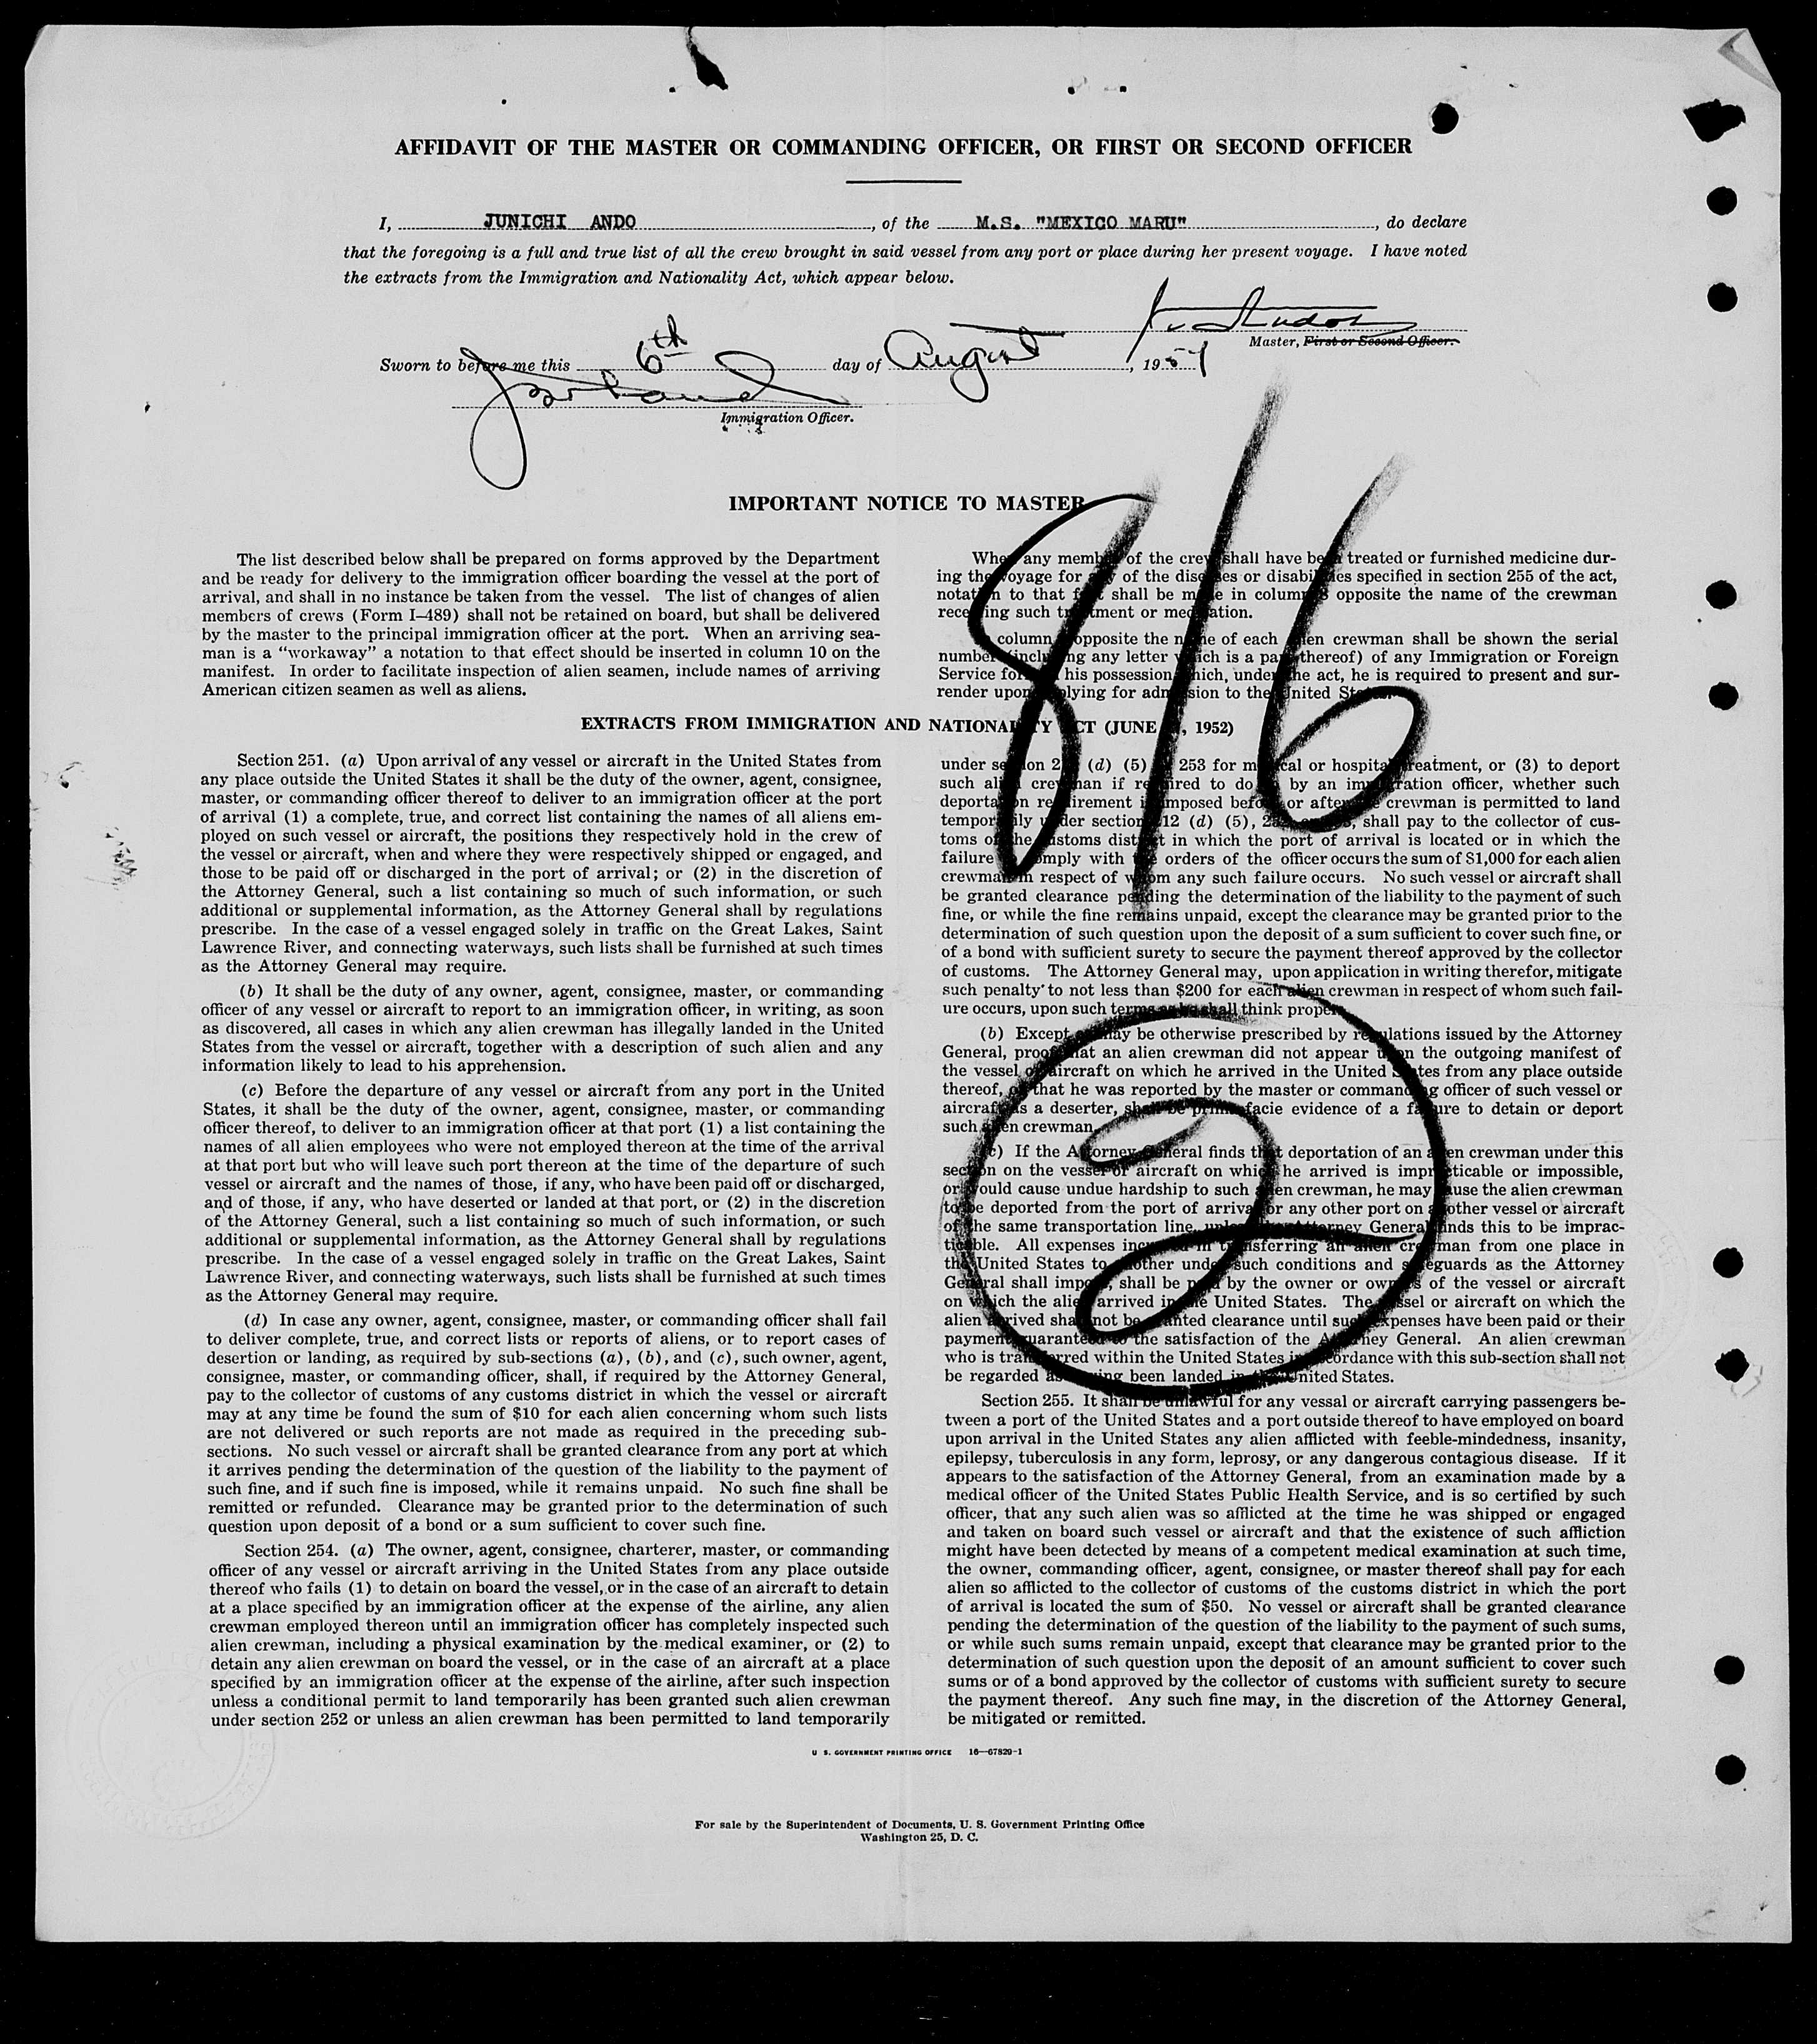 AFFIDAVIT OF THE MASTER OR COMMANDING OFFICER, OR FIRST OR SECOND OFFICER
I, JUNICHI ANDO, of the M.S. "MEXICO MARU", do declare
that the foregoing is a full and true list of all the crew brought in said vessel from any port or place during her present voyage. I have noted
the extracts from the Immigration and Nationality Act, which appear below.
Master, First or Second Officer.
Sworn to before me this 6th day of August, 195
Immigration Officer.
8/6
IMPORTANT NOTICE TO MASTER
The list described below shall be prepared on forms approved by the Department
and be ready for delivery to the immigration officer boarding the vessel at the port of
arrival, and shall in no instance be taken from the vessel. The list of changes of alien
members of crews (Form I–489) shall not be retained on board, but shall be delivered
by the master to the principal immigration officer at the port. When an arriving sea-
man is a “workaway” a notation to that effect should be inserted in column 10 on the
manifest. In order to facilitate inspection of alien seamen, include names of arriving
American citizen seamen as well as aliens.
When any member of the crew shall have been treated or furnished medicine dur-
ing the voyage for any of the diseases or disabilities specified in section 255 of the act,
notation to that fact shall be made in column opposite the name of the crewman
receiving such treatment or medication.
column opposite the name of each alien crewman shall be shown the serial
number (including any letter which is a part thereof) of any Immigration or Foreign
Service form in his possession which, under the act, he is required to present and sur-
render upon applying for admission to the United States.
EXTRACTS FROM IMMIGRATION AND NATIONALITY ACT (JUNE , 1952)
Section 251. (a) Upon arrival of any vessel or aircraft in the United States from
any place outside the United States it shall be the duty of the owner, agent, consignee,
master, or commanding officer thereof to deliver to an immigration officer at the port
of arrival (1) a complete, true, and correct list containing the names of all aliens em-
ployed on such vessel or aircraft, the positions they respectively hold in the crew of
the vessel or aircraft, when and where they were respectively shipped or engaged, and
those to be paid off or discharged in the port of arrival; or (2) in the discretion of
the Attorney General, such a list containing so much of such information, or such
additional or supplemental information, as the Attorney General shall by regulations
prescribe. In the case of a vessel engaged solely in traffic on the Great Lakes, Saint
Lawrence River, and connecting waterways, such lists shall be furnished at such times
as the Attorney General may require.
(b) It shall be the duty of any owner, agent, consignee, master, or commanding
officer of any vessel or aircraft to report to an immigration officer, in writing, as soon
as discovered, all cases in which any alien crewman has illegally landed in the United
States from the vessel or aircraft, together with a description of such alien and any
information likely to lead to his apprehension.
(c) Before the departure of any vessel or aircraft from any port in the United
States, it shall be the duty of the owner, agent, consignee, master, or commanding
officer thereof, to deliver to an immigration officer at that port (1) a list containing the
names of all alien employees who were not employed thereon at the time of the arrival
at that port but who will leave such port thereon at the time of the departure of such
vessel or aircraft and the names of those, if any, who have been paid off or discharged,
and of those, if any, who have deserted or landed at that port, or (2) in the discretion
of the Attorney General, such a list containing so much of such information, or such
additional or supplemental information, as the Attorney General shall by regulations
prescribe. In the case of a vessel engaged solely in traffic on the Great Lakes, Saint
Lawrence River, and connecting waterways, such lists shall be furnished at such times
as the Attorney General may require.
(d) In case any owner, agent, consignee, master, or commanding officer shall fail
to deliver complete, true, and correct lists or reports of aliens, or to report cases of
desertion or landing, as required by sub-sections (a), (b), and (c), such owner, agent,
consignee, master, or commanding officer, shall, if required by the Attorney General,
pay to the collector of customs of any customs district in which the vessel or aircraft
may at any time be found the sum of $10 for each alien concerning whom such lists
are not delivered or such reports are not made as required in the preceding sub-
sections. No such vessel or aircraft shall be granted clearance from any port at which
it arrives pending the determination of the question of the liability to the payment of
such fine, and if such fine is imposed, while it remains unpaid. No such fine shall be
remitted or refunded. Clearance may be granted prior to the determination of such
question upon deposit of a bond or a sum sufficient to cover such fine.
Section 254. (a) The owner, agent, consignee, charterer, master, or commanding
officer of any vessel or aircraft arriving in the United States from any place outside
thereof who fails (1) to detain on board the vessel, or in the case of an aircraft to detain
at a place specified by an immigration officer at the expense of the airline, any alien
crewman employed thereon until an immigration officer has completely inspected such
alien crewman, including a physical examination by the medical examiner, or (2) to
detain any alien crewman on board the vessel, or in the case of an aircraft at a place
specified by an immigration officer at the expense of the airline, after such inspection
unless a conditional permit to land temporarily has been granted such alien crewman
under section 252 or unless an alien crewman has been permitted to land temporarily
under section (d) (5) 253 for medical or hospital treatment, or (3) to deport
such alien crewman if required to do by an immigration officer, whether such
deportation requirement is imposed before or after the crewman is permitted to land
temporarily under section 212 (d) (5), shall pay to the collector of cus-
toms of the customs district in which the port of arrival is located or in which the
failure to comply with the orders of the officer occurs the sum of $1,000 for each alien
crewman in respect of whom any such failure occurs. No such vessel or aircraft shall
be granted clearance pending the determination of the liability to the payment of such
fine, or while the fine remains unpaid, except the clearance may be granted prior to the
determination of such question upon the deposit of a sum sufficient to cover such fine, or
of a bond with sufficient surety to secure the payment thereof approved by the collector
of customs. The Attorney General may, upon application in writing therefor, mitigate
such penalty to not less than $200 for each alien crewman in respect of whom such fail-
ure occurs, upon such terms as he shall think proper.
(b) Except as may be otherwise prescribed by regulations issued by the Attorney
General, proof that an alien crewman did not appear upon the outgoing manifest of
the vessel or aircraft on which he arrived in the United States from any place outside
thereof, or that he was reported by the master or commanding officer of such vessel or
aircraft as a deserter, shall be prima facie evidence of a failure to detain or deport
such alien crewman.
(c) If the Attorney General finds that deportation of an alien crewman under this
section on the vessel or aircraft on which he arrived is impracticable or impossible,
or would cause undue hardship to such alien crewman, he may cause the alien crewman
to be deported from the port of arrival or any other port on another vessel or aircraft
of the same transportation line, unless the Attorney General finds this to be imprac-
ticable. All expenses incurred in transferring an alien crewman from one place in
the United States to another under such conditions and safeguards as the Attorney
General shall impose, shall be paid by the owner or owners of the vessel or aircraft
on which the alien arrived in the United States. The vessel or aircraft on which the
alien arrived shall not be granted clearance until such expenses have been paid or their
payment guaranteed to the satisfaction of the Attorney General. An alien crewman
who is transferred within the United States in accordance with this sub-section shall not
be regarded as having been landed in the United States.
2
Section 255. It shall be unlawful for any vessal or aircraft carrying passengers be-
tween a port of the United States and a port outside thereof to have employed on board
upon arrival in the United States any alien afflicted with feeble-mindedness, insanity,
epilepsy, tuberculosis in any form, leprosy, or any dangerous contagious disease. If it
appears to the satisfaction of the Attorney General, from an examination made by a
medical officer of the United States Public Health Service, and is so certified by such
officer, that any such alien was so afflicted at the time he was shipped or engaged
and taken on board such vessel or aircraft and that the existence of such affliction
might have been detected by means of a competent medical examination at such time,
the owner, commanding officer, agent, consignee, or master thereof shall pay for each
alien so afflicted to the collector of customs of the customs district in which the port
of arrival is located the sum of $50. No vessel or aircraft shall be granted clearance
pending the determination of the question of the liability to the payment of such sums,
or while such sums remain unpaid, except that clearance may be granted prior to the
determination of such question upon the deposit of an amount sufficient to cover such
sums or of a bond approved by the collector of customs with sufficient surety to secure
the payment thereof. Any such fine may, in the discretion of the Attorney General,
be mitigated or remitted.
U S. GOVERNMENT PRINTING OFFICE 16—67820-1
For sale by the Superintendent of Documents, U. S. Government Printing Office
Washington 25, D. C.